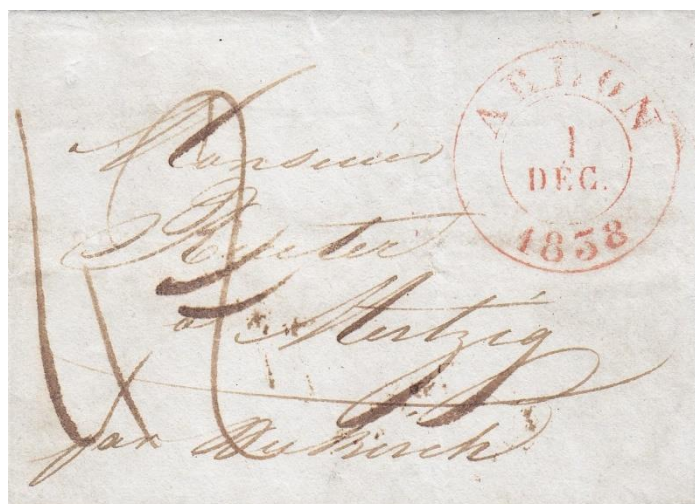 ARLON
1
DÉC.
1838
Monsieur
Reuter
à Mertzig
par